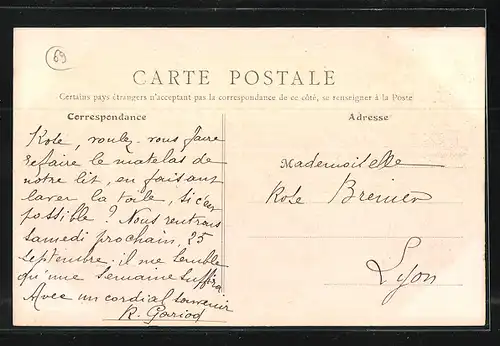 69
CARTE POSTALE
Certains pays étrangers n'acceptant pas la correspondance de ce côté, se renseigner à la Poste
Correspondance
Adresse
Rose, voulez-vous faire
refaire le matelas de
notre lit, en faisant
laver la toile, si c'est
possible? Nous rentrons
samedi prochain, 25
septembre. il me semble
qu'une semaine suffira.
Avec un cordial souvenir
R. Gariod
Mademoiselle
Rose
Lyon